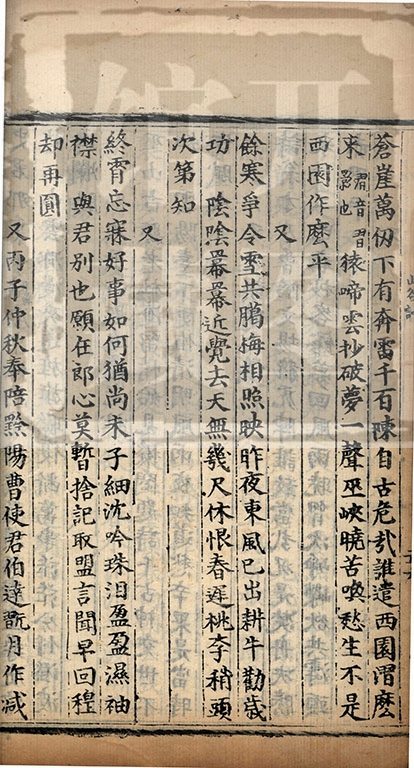 蒼崖萬仞下有奔雷千百陳自古危㢤誰遣西園渭麼
來渭音習影也猿啼雲抄破夢一聲巫峽曉苦喚愁生不是
西園作麼平
又
餘寒爭令雪共臈梅相照映昨夜東風巳出耕牛勸歲
功 陰陰冪冪近覺去天無幾尺休恨春遲桃李稍頭
次第知
又
終霄忘寐好事如何猶尚未子細沈吟珠泪盈盈濕袖
襟 與君別也願在郎心莫暫捨記取盟言聞早回程
却再圓
又丙子仲秋奉陪黔陽曹使君伯達翫月作减